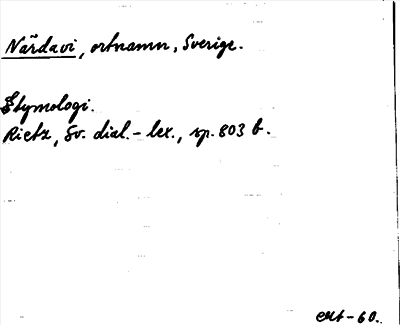 Närdavi, ortnamn, Sverige.
Etymologi.
Rietz, Sv. dial.-lex., sp. 803 b.